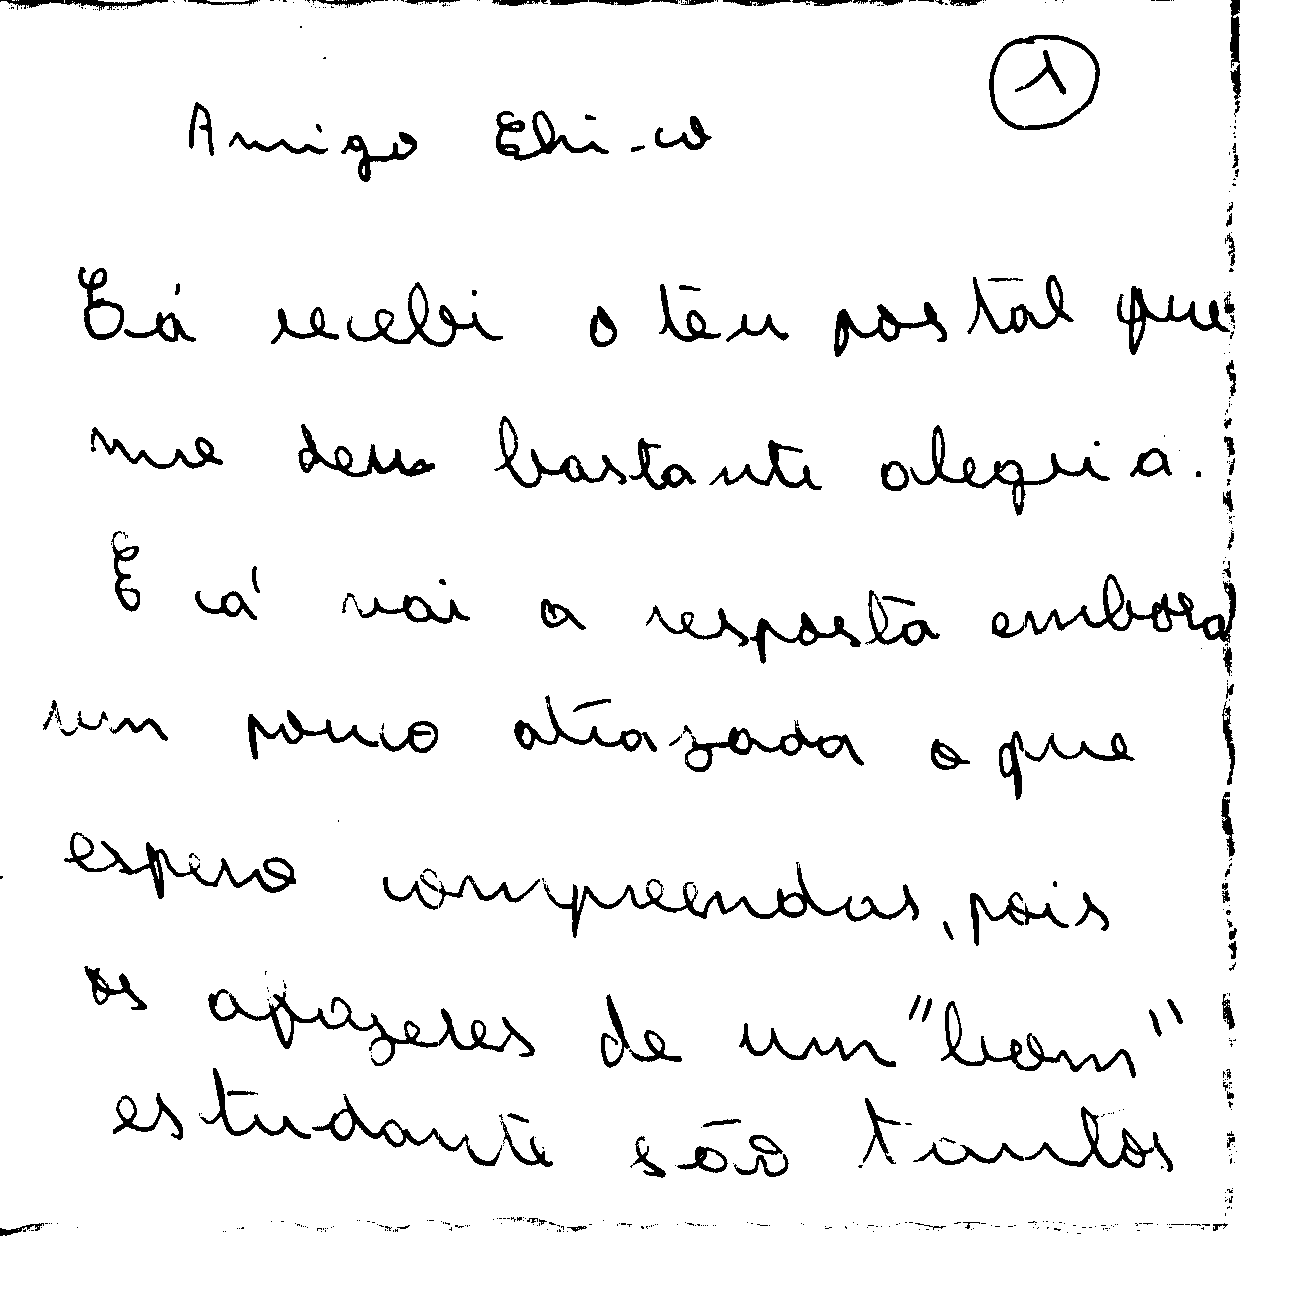 1
Amigo Chi-co
Cá recebi o teu postal que
me deu bastante alegria.
E cá vai a resposta embora
um pouco atrazada o que
espero compreendas, pois
os afazeres de um "bom"
estudante são tantos